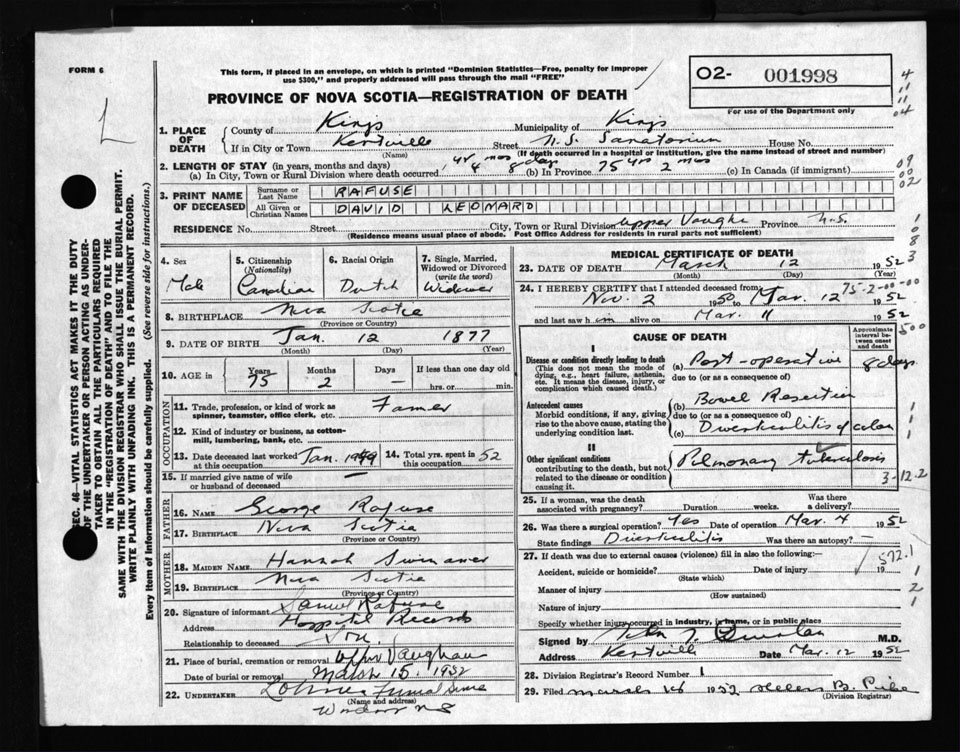 FORM 6
This form, if placed in an envelope, on which is printed "Dominion Statistics—Free, penalty for improper
use $300," and properly addressed will pass through the mail "FREE"
O2- 001998
For use of the Department only
PROVINCE OF NOVA SCOTIA—REGISTRATION OF DEATH
1. PLACE OF DEATH
County of Kings Municipality of Kings
If in City or Town Kentville Street N.S. Sanatorium House No.
(Name) (If death occurred in a hospital or institution, give the name instead of street and number)
2. LENGTH OF STAY (in years, months and days) 1 yr 4 mos 8 days 75 yrs 2 mos
(a) In City, Town or Rural Division where death occurred, (b) In Province (c) In Canada (if immigrant)
3. PRINT NAME OF DECEASED
Surname or Last Name RAFUSE
All Given or Christian Names DAVID LEONARD
RESIDENCE No. Street City, Town or Rural Division Upper Vaughn Province N.S.
(Residence means usual place of abode. Post Office Address for residents in rural parts not sufficient)
SEC. 46—VITAL STATISTICS ACT MAKES IT THE DUTY
OF THE UNDERTAKER OR PERSON ACTING AS UNDER-
TAKER TO OBTAIN ALL THE PARTICULARS REQUIRED
IN THE "REGISTRATION OF DEATH" AND TO FILE THE
SAME WITH THE DIVISION REGISTRAR WHO SHALL ISSUE THE BURIAL PERMIT.
WRITE PLAINLY WITH UNFADING INK. THIS IS A PERMANENT RECORD.
Every item of information should be carefully supplied. (See reverse side for instructions.)
4. Sex
Male
5. Citizenship
(Nationality)
Canadian
6. Racial Origin
Dutch
7. Single, Married,
Widowed or Divorced
(write the word)
Widower
8. BIRTHPLACE Nova Scotia
(Province or Country)
9. DATE OF BIRTH Jan. 12 1877
(Month) (Day) (Year)
10. AGE in Years 75 Months 2 Days — If less than one day
hrs. or min.
OCCUPATION
11. Trade, profession, or kind of work as
spinner, teamster, office clerk, etc. Farmer
12. Kind of industry or business, as cotton-
mill, lumbering, bank, etc.
13. Date deceased last worked
at this occupation Jan. 1949
14. Total yrs. spent in
this occupation 52
15. If married give name of wife
or husband of deceased —
FATHER
16. NAME George Rafuse
17. BIRTHPLACE Nova Scotia
(Province or Country)
MOTHER
18. MAIDEN NAME Hannah
19. BIRTHPLACE Nova Scotia
(Province or Country)
20. Signature of informant Samuel Rafuse
Address Hospital Records
Relationship to deceased Son.
21. Place of burial, cremation or removal Upper Vaughan
Date of burial or removal March 15. 1952
22. UNDERTAKER Funeral
(Name and address)
Windsor NS
MEDICAL CERTIFICATE OF DEATH
23. DATE OF DEATH March 12 1952
(Month) (Day) (Year)
24. I HEREBY CERTIFY that I attended deceased from 75-2-00-00
Nov. 2 1950 to Mar. 12 1952
and last saw him alive on Mar. 11 1952
CAUSE OF DEATH
Approximate interval between onset and death
I
Disease or condition directly leading to death
(This does not mean the mode of
dying, e.g., heart failure, asthenia,
etc. It means the disease, injury, or
complication which caused death.)
(a) Post-operative 8 days
due to (or as a consequence of)
Antecedent causes
Morbid conditions, if any, giving
rise to the above cause, stating the
underlying condition last.
(b) Bowel Resection
due to (or as a consequence of)
(c) Diverticulitis of colon
II
Other significant conditions
contributing to the death, but not
related to the disease or condition
causing it.
Pulmonary tuberculosis
3-12.2
25. If a woman, was the death
associated with pregnancy? Duration weeks. Was there a delivery?
26. Was there a surgical operation? Yes Date of operation Mar. 4 1952
State findings Diverticulitis Was there an autopsy? —
27. If death was due to external causes (violence) fill in also the following:—
572.1
Accident, suicide or homicide? Date of injury 19
(State which)
Manner of injury
(How sustained)
Nature of injury
Specify whether injury occurred in industry, in home, or in public place
Signed by M.D.
Address Kentville Date Mar. 12 1952
28. Division Registrar's Record Number 1
29. Filed March 14 1952 Helen B.
(Division Registrar)